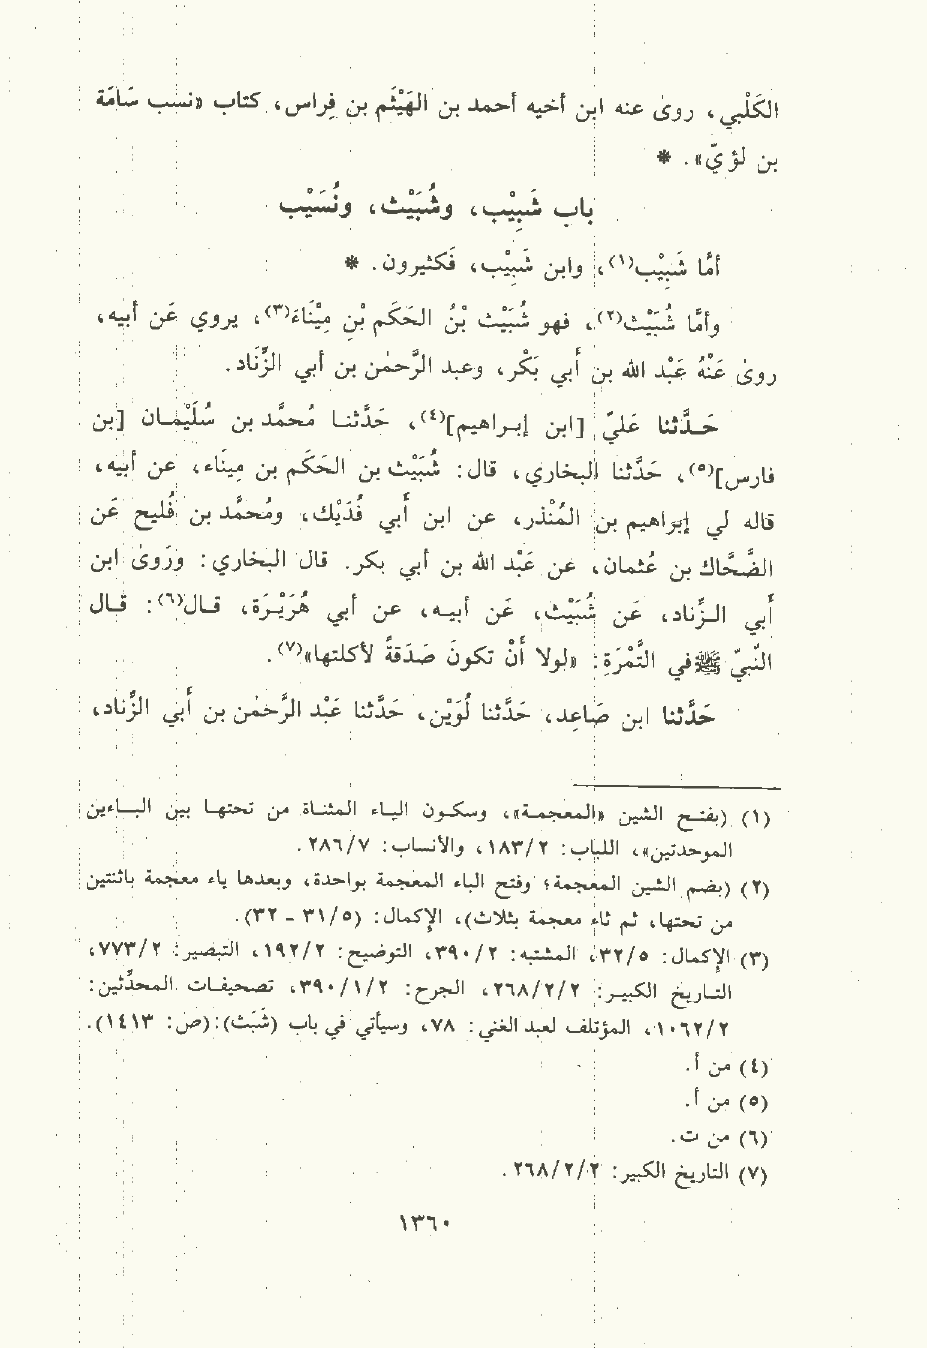 الكَلْبي، روىٰ عنه ابن أخيه أحمد بن الهَيْثَم بن فِراس، كتاب «نسب سَامَة
بن لؤيّ». *
باب شَبِيْب، وشُبَيْث، ونُسَيْب
أمَّا شَبِيْب(١)، وابن شَبِيْب، فَكثيرون. *
وأمَّا شُبَيْث(٢)، فهو شُبَيْث بْنُ الحَكَم بْنِ مِيْنَاءَ(٣)، يروي عَن أبيه،
روىٰ عَنْهُ عَبْد الله بن أَبي بَكْر، وعبد الرَّحمٰن بن أبي الزِّناد.
حَـدَّثنا عَليّ [ابن إبـراهيم](٤)، حَدَّثنـا مُحمَّد بن سُلَيْمـان [بن
فارس](٥)، حَدَّثنا البخاري، قال: شُبَيْث بن الحَكَم بن مِينَاء، عن أبيه،
قاله لي إبراهيم بن المُنْذر، عن ابن أَبي فُدَيْك، ومُحمَّد بن فُليح عَن
الضَّحَّاك بن عُثمان، عن عَبْد الله بن أبي بكر. قال البخاري: ورَوىٰ ابن
أَبي الـزِّناد، عَن شُبَيْث، عَن أبيـه، عن أبي هُرَيْـرَة، قـال(٦): قـال
النَّبيّ ﷺ في التَّمْرَةِ: «لولا أَنْ تكونَ صَدَقةً لأكلتها»(٧).
حَدَّثنا ابن صَاعِد، حَدَّثنا لُوَيْن، حَدَّثنا عَبْد الرَّحمٰن بن أَبي الزِّناد،
(١) (بفتـح الشين «المعجمـة»، وسكـون اليـاء المثنـاة من تحتهـا بين البـاءين
الموحدتين»، اللباب: ١٨٣/٢، والأنساب: ٢٨٦/٧.
(٢) (بضم الشين المعجمة؛ وفتح الباء المعجمة بواحدة، وبعدها ياء معجمة باثنتين
من تحتها، ثم ثاء معجمة بثلاث)، الإكمال: (٣١/٥ - ٣٢).
(٣) الإكمال: ٣٢/٥، المشتبه: ٣٩٠/٢، التوضيح: ١٩٢/٢، التبصير: ٧٧٣/٢،
التـاريخ الكبيـر: ٢٦٨/٢/٢، الجرح: ٣٩٠/١/٢، تصحيفـات المحدِّثين:
١٠٦٢/٢، المؤتلف لعبد الغني: ٧٨، وسيأتي في باب (شَبَث):(ص: ١٤١٣).
(٤) من أ.
(٥) من أ.
(٦) من ت.
(٧) التاريخ الكبير: ٢٦٨/٢/٢.
١٣٦٠